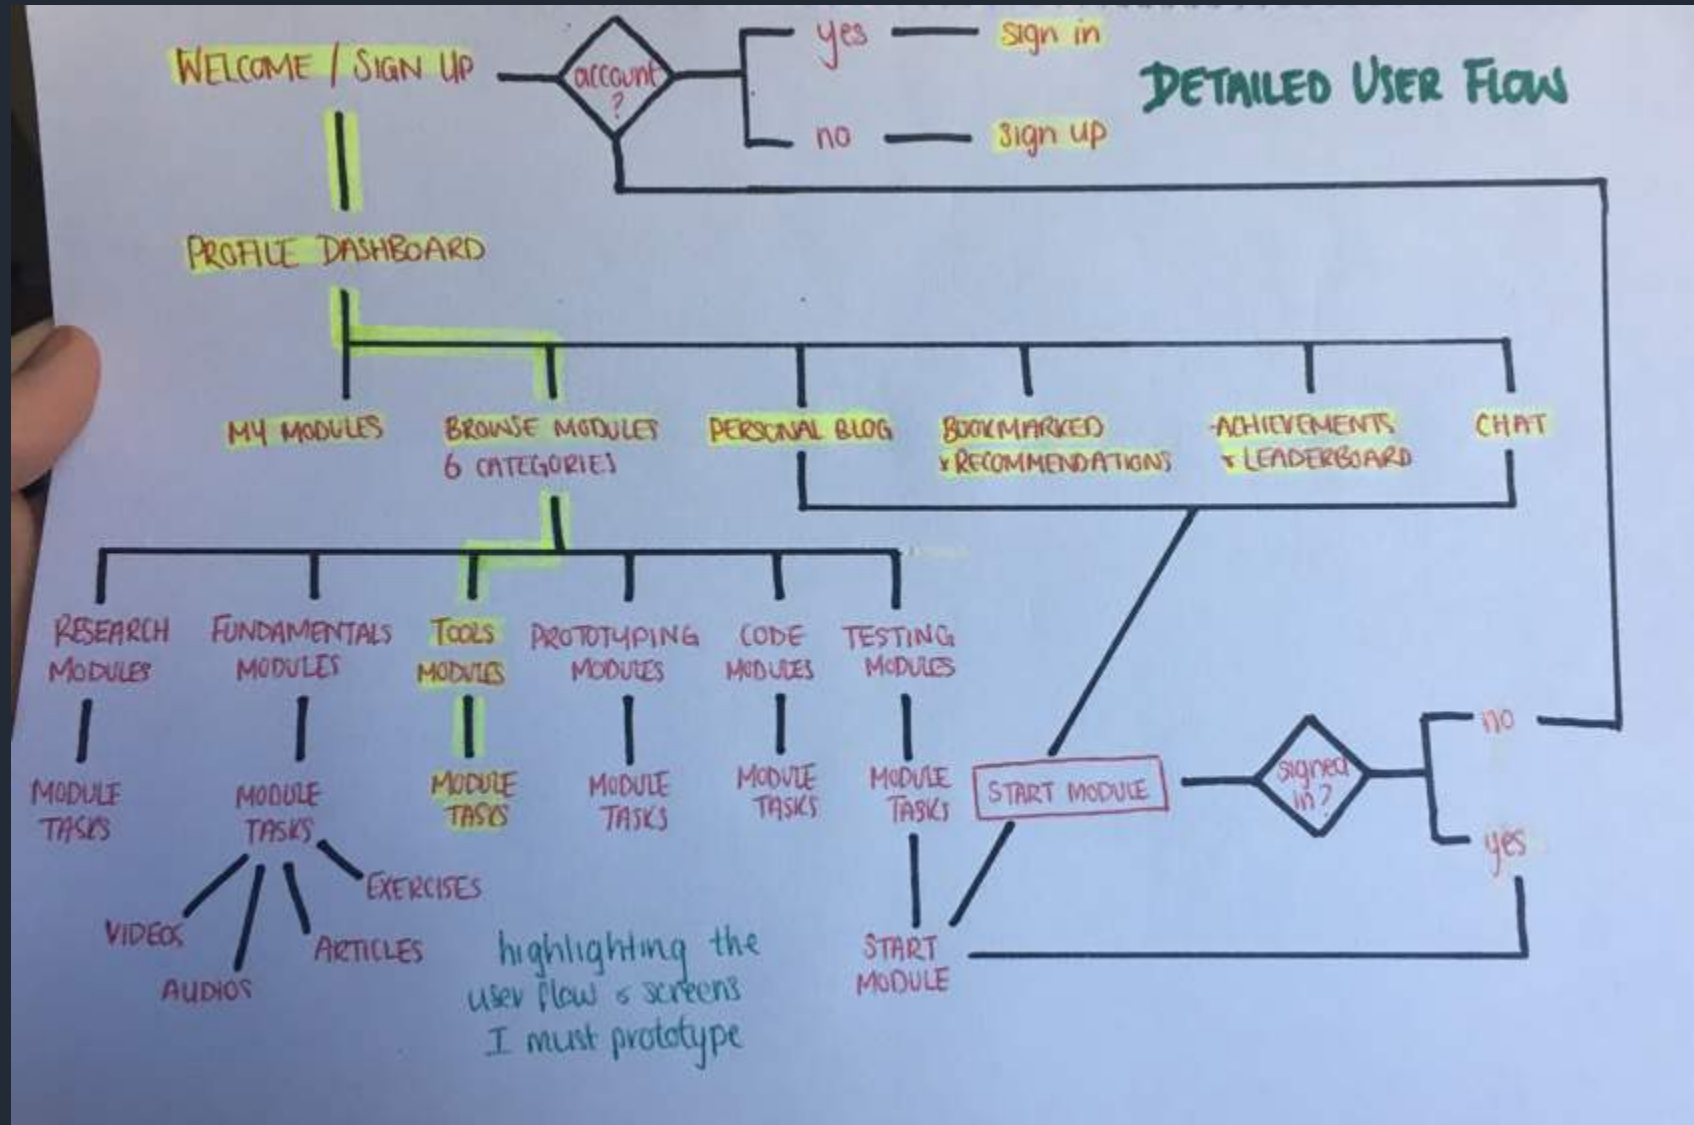 WELCOME / SIGN UP
account
?
yes
sign in
no
sign up
DETAILED USER FLOW
PROFILE DASHBOARD
MY MODULES
BROWSE MODULES
6 CATEGORIES
PERSONAL BLOG
BOOKMARKED
& RECOMMENDATIONS
ACHIEVEMENTS
& LEADERBOARD
CHAT
RESEARCH
MODULES
FUNDAMENTALS
MODULES
TOOLS
MODULES
PROTOTYPING
MODULES
CODE
MODULES
TESTING
MODULES
MODULE
TASKS
MODULE
TASKS
MODULE
TASKS
MODULE
TASKS
MODULE
TASKS
MODULE
TASKS
START MODULE
signed
in?
no
yes
VIDEOS
AUDIOS
ARTICLES
EXERCISES
highlighting the
user flow & screens
I must prototype
START
MODULE